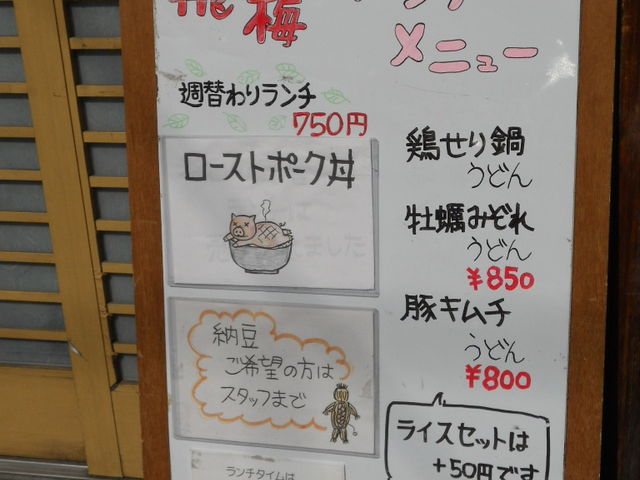 飛梅
メニュー
週替わりランチ
750円
ローストポーク丼
納豆
ご希望の方は
スタッフまで
ランチタイムは
鶏せり鍋
うどん
牡蠣みぞれ
うどん
¥850
豚キムチ
うどん
¥800
ライスセットは
+50円です